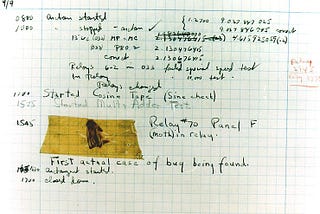 9/9
0800 Antan started
1000 " stopped - antan ✓ { 1.2700 9.037 847 025
9.037 846 995 correct
13"UC (032) MP-MC 4.615925059(-2)
(033) PRO 2 2.130476415
correct 2.130676415
Relays 6-2 in 033 failed special speed test
in Relay " test.
Relays changed
1100 Started Cosine Tape (Sine check)
1525 Started Multi+Adder Test.
1545 Relay #70 Panel F
(moth) in relay.
First actual case of bug being found.
antangent started.
1700 closed down.